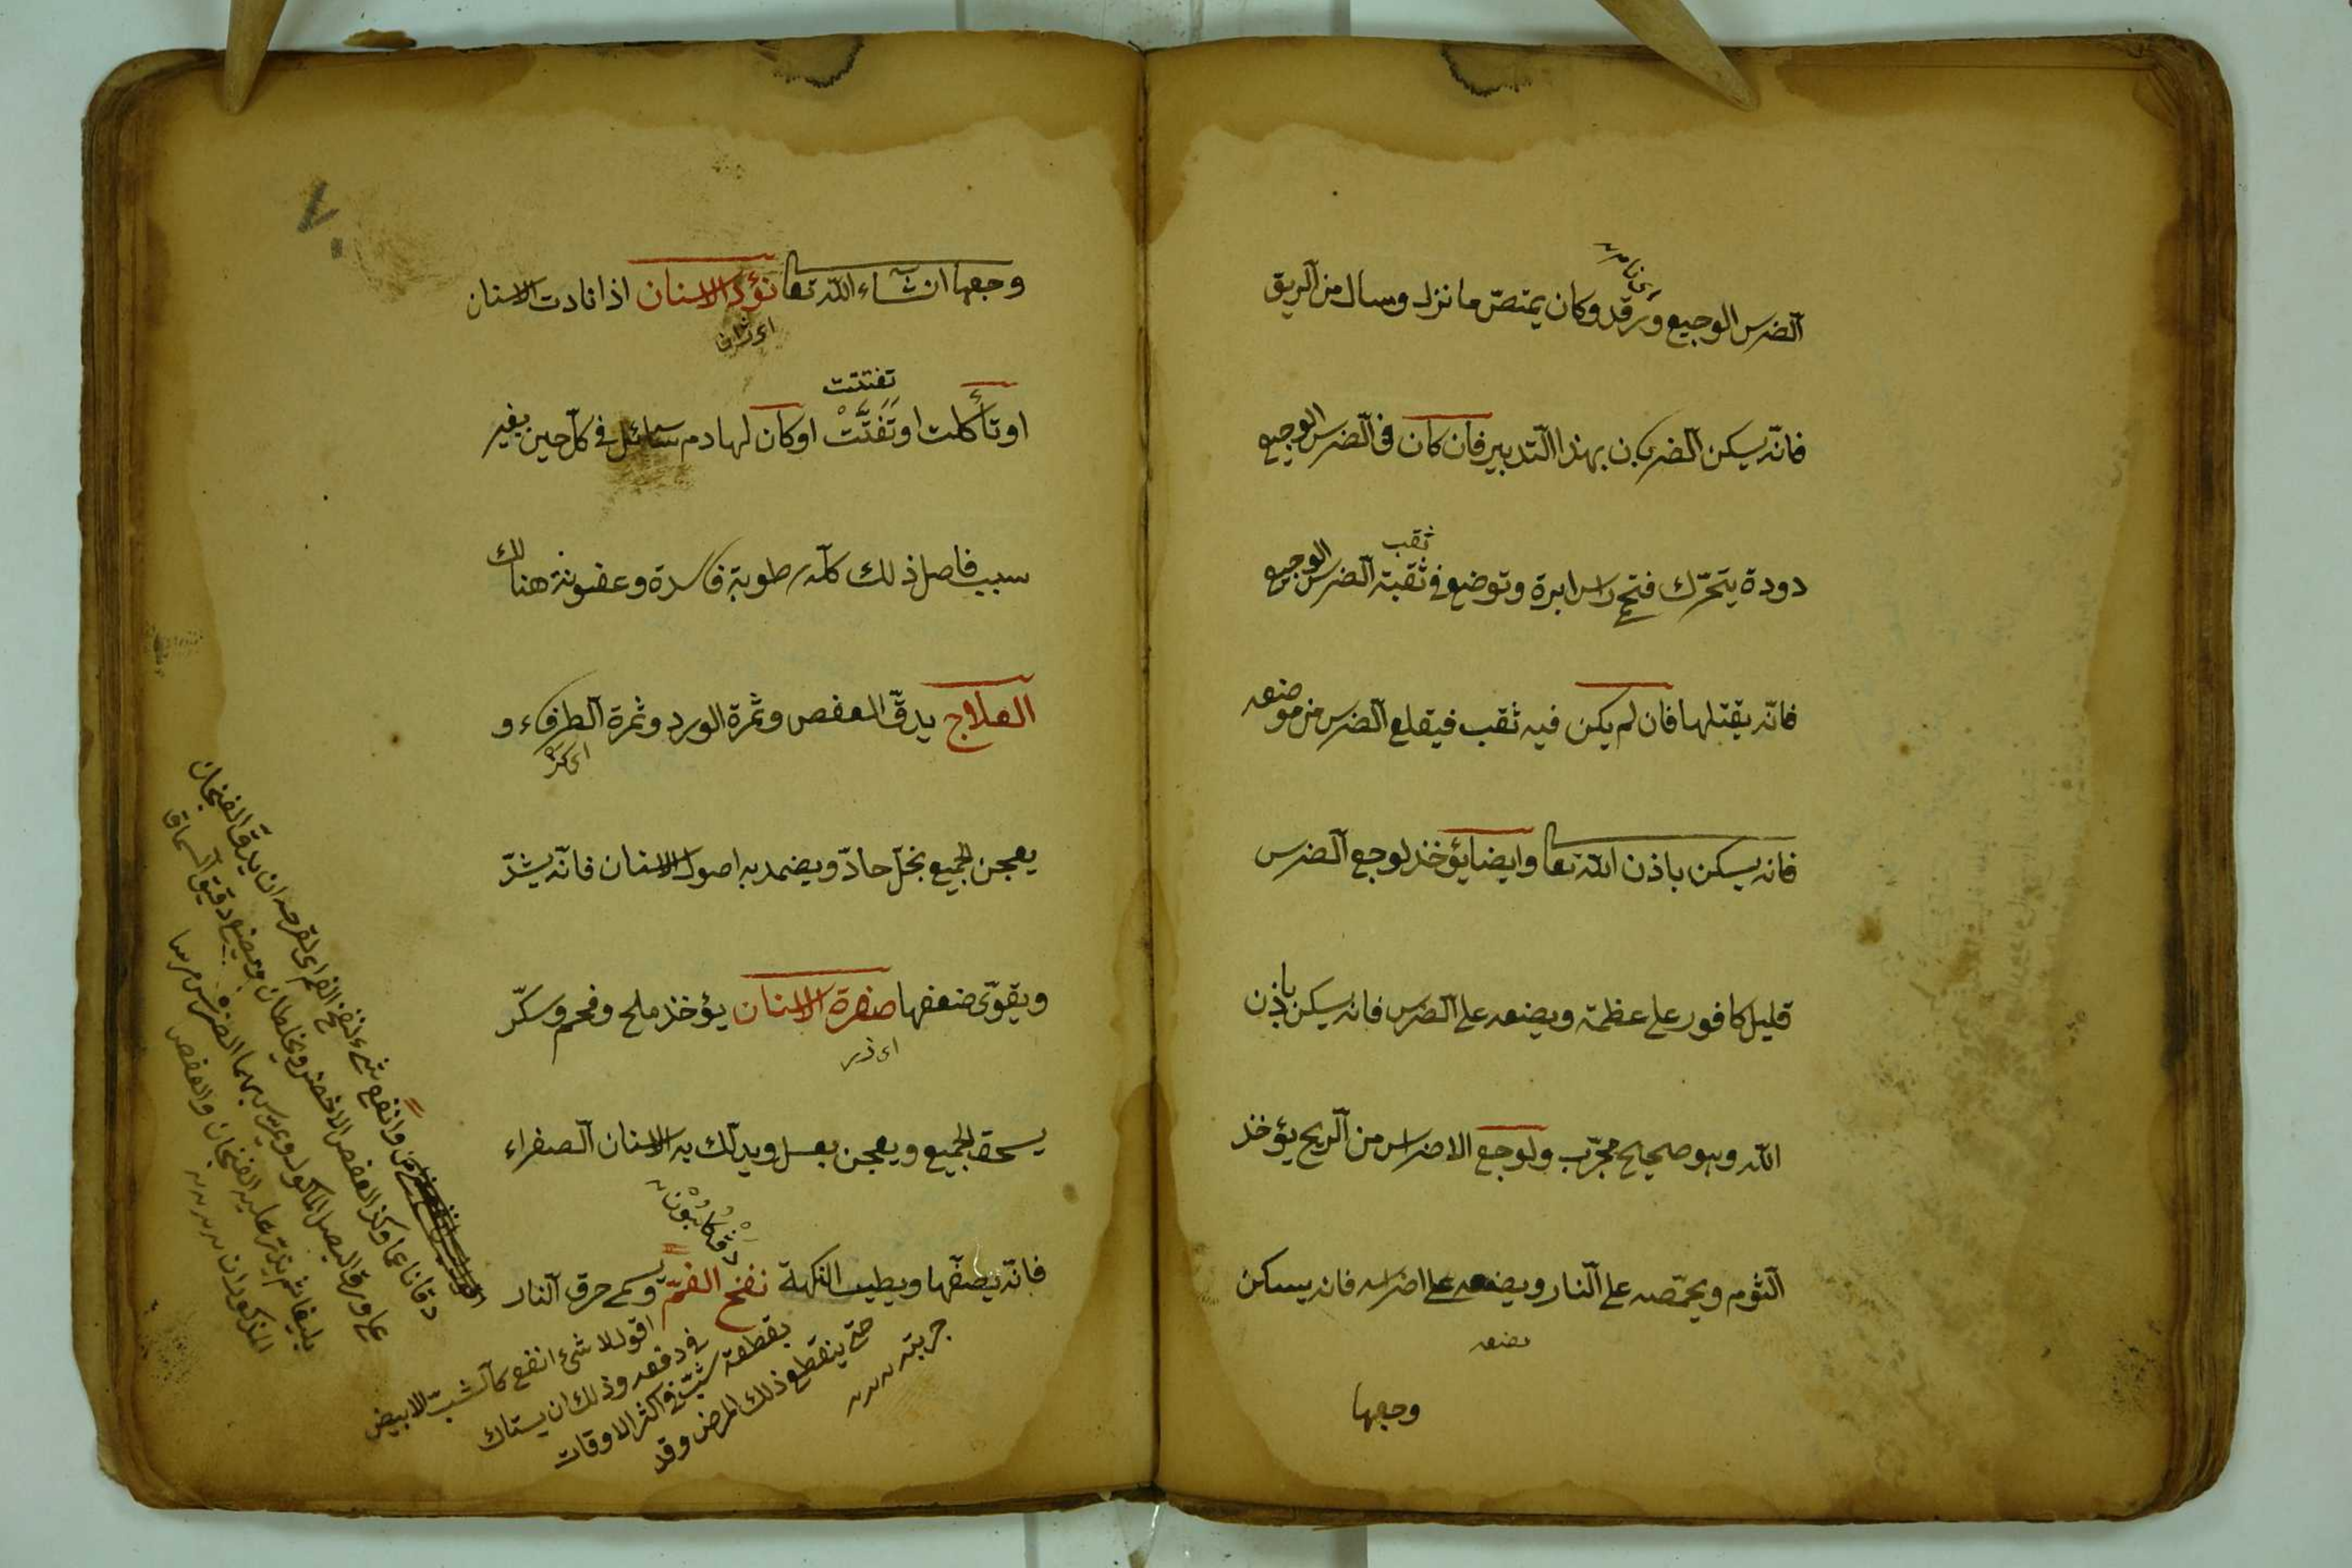 الضرس الوجيع ويرقد وكان يمتصّ ما نزل وسال من الريق
فانّه يسكن الضربان بهذا التدبير فان كان فى الضرس الوجيع
ثقب
دودة يتحرّك فتحمى راس ابرة وتوضع فى ثقبة الضرس الوجيع
فانّه يقتلها فان لم يكن فيه ثقب فيقلع الضرس من موضعه
فانه يسكن باذن الله تعا وايضا يؤخذ لوجع الضرس
قليل كافور على عظمة ويضعه على الضرس فانه يسكن باذن
الله وهو صحيح مجرّب ولوجع الاضراس من الريح يؤخذ
الثوم ويحمّصه على النار ويضعه على اضراسه فانه يسكن
يضعه
وجعها
٧٠
وجعها ان شاء الله تعا نؤد الاسنان اذا نادت الاسنان
او تأكلت او تَفَتَّتْ او كان لها دم سائل فى كلّ حين بغير
تفتتت
سبب فاصل ذلك كلّه رطوبة فاسدة وعفونة هنالك
العلاج يدقّ العفص وثمرة الورد وثمرة الطرفاء و
اى كز
يعجن الجميع بخلّ حادّ ويضمد به اصول الاسنان فانّه يشدّ
ويقوّى ضعفها صفرة الاسنان يؤخذ ملح وفحم وسكّر
اى ذر
يسحق الجميع ويعجن بعسل ويدلك به الاسنان الصفراء
فانّه يصفّها ويطيب النكهة نفخ الفمّ ويسمى حرق النار
اقول لا شئ انفع كالشبّ الابيض
فى دفعه وذلك ان يستاك
بقطعة شبّ فى اكثر الاوقات
حتى ينقطع ذلك المرض وقد
جربته
وانفع شئ لنفخ الفم اى لقرحه ان يدق الفنجان
دقا ناعما وكذا العفص الاخضر ويخلطان ويضع دقيق السماق
على ورق البصل المأكول ويمرس بهما الضرس مرسا
بليغا ثم يذر عليه الفنجان والعفص
المذكوران